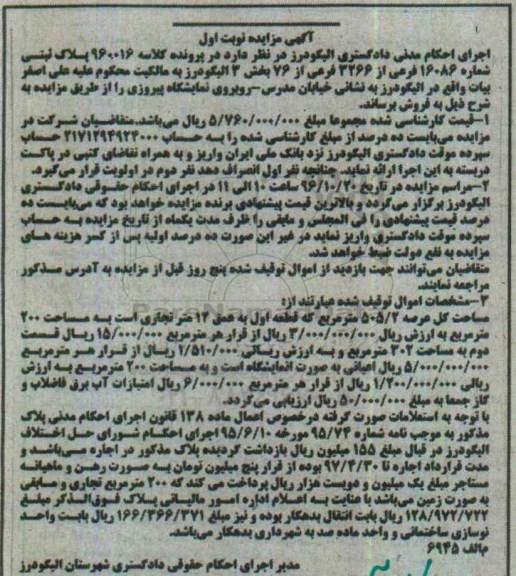 آگهی مزایده نوبت اول
اجرای احکام مدنی دادگستری الیگودرز در نظر دارد در پرونده کلاسه ۹۶۰۰۱۶ پلاک ثبتی
شماره ۱۶۰۸۶ فرعی از ۳۲۶۶ فرعی از ۷۶ بخش ۳ الیگودرز به مالکیت محکوم علیه علی اصغر
بیات واقع در الیگودرز به نشانی خیابان مدرس-روبروی نمایشگاه پیروزی را از طریق مزایده به
شرح ذیل به فروش برساند.
۱-قیمت کارشناسی شده مجموعا مبلغ ۵/۷۶۰/۰۰۰/۰۰۰ ریال می‌باشد.متقاضیان شرکت در
مزایده می‌بایست ده درصد از مبلغ کارشناسی شده را به حساب ۲۱۷۱۲۹۴۹۲۴۰۰۰ حساب
سپرده موقت دادگستری الیگودرز نزد بانک ملی ایران واریز و به همراه تقاضای کتبی در پاکت
دربسته به این اجرا ارائه نماید. چنانچه نفر اول انصراف دهد نفر دوم در اولویت قرار می‌گیرد.
۲-مراسم مزایده در تاریخ ۹۶/۱۰/۲۰ ساعت ۱۰ الی ۱۱ در اجرای احکام حقوقی دادگستری
الیگودرز برگزار می‌گردد و بالاترین قیمت پیشنهادی برنده مزایده خواهد بود که می‌بایست ده
درصد قیمت پیشنهادی را فی المجلس و مابقی را ظرف مدت یکماه از تاریخ مزایده به حساب
سپرده موقت دادگستری واریز نماید در غیر این صورت ده درصد اولیه پس از کسر هزینه های
مزایده به نفع دولت ضبط خواهد شد.
متقاضیان می‌توانند جهت بازدید از اموال توقیف شده پنج روز قبل از مزایده به آدرس مذکور
مراجعه نمایند.
۳-مشخصات اموال توقیف شده عبارتند از:
مساحت کل عرصه ۵۰۵/۲ مترمربع که قطعه اول به عمق ۱۲ متر تجاری است به مساحت ۲۰۰
مترمربع به ارزش ریال ۳/۰۰۰/۰۰۰/۰۰۰ ریال از قرار هر مترمربع ۱۵/۰۰۰/۰۰۰ ریال قسمت
دوم به مساحت ۳۰۲ مترمربع و به ارزش ریالی ۱/۵۱۰/۰۰۰ ریال از قرار هر مترمربع
۵/۰۰۰/۰۰۰ ریال اعیانی به صورت نمایشگاه است و به مساحت ۲۰۰ مترمربع به ارزش
ریالی ۱/۲۰۰/۰۰۰/۰۰۰ ریال از قرار هر مترمربع ۶/۰۰۰/۰۰۰ ریال امتیازات آب برق فاضلاب و
گاز جمعا به مبلغ ۵۰/۰۰۰/۰۰۰ ریال ارزیابی می‌گردد.
با توجه به استعلامات صورت گرفته درخصوص اعمال ماده ۱۳۸ قانون اجرای احکام مدنی پلاک
مذکور به موجب نامه شماره ۹۵/۷۴ مورخه ۹۵/۶/۱۰ اجرای احکام شورای حل اختلاف
الیگودرز در قبال مبلغ ۱۵۵ میلیون ریال بازداشت گردیده پلاک مذکور در اجاره می‌باشد و
مدت قرارداد اجاره تا ۹۷/۴/۳۰ بوده از قرار پنج میلیون تومان به صورت رهن و ماهیانه
مستاجر مبلغ یک میلیون و دویست هزار ریال پرداخت می کند که ۲۰۰ مترمربع تجاری و مابقی
به صورت زمین می‌باشد با عنایت به اعلام اداره امور مالیاتی پلاک فوق‌الذکر مبلغ
۱۲۸/۹۷۲/۷۲۲ ریال بابت انتقال بدهکار بوده و نیز مبلغ ۱۶۶/۳۶۶/۳۷۱ ریال بابت واحد
نوسازی ساختمانی و واحد ماده صد به شهرداری بدهکار می‌باشد.
م‌الف ۶۹۴۵
مدیر اجرای احکام حقوقی دادگستری شهرستان الیگودرز